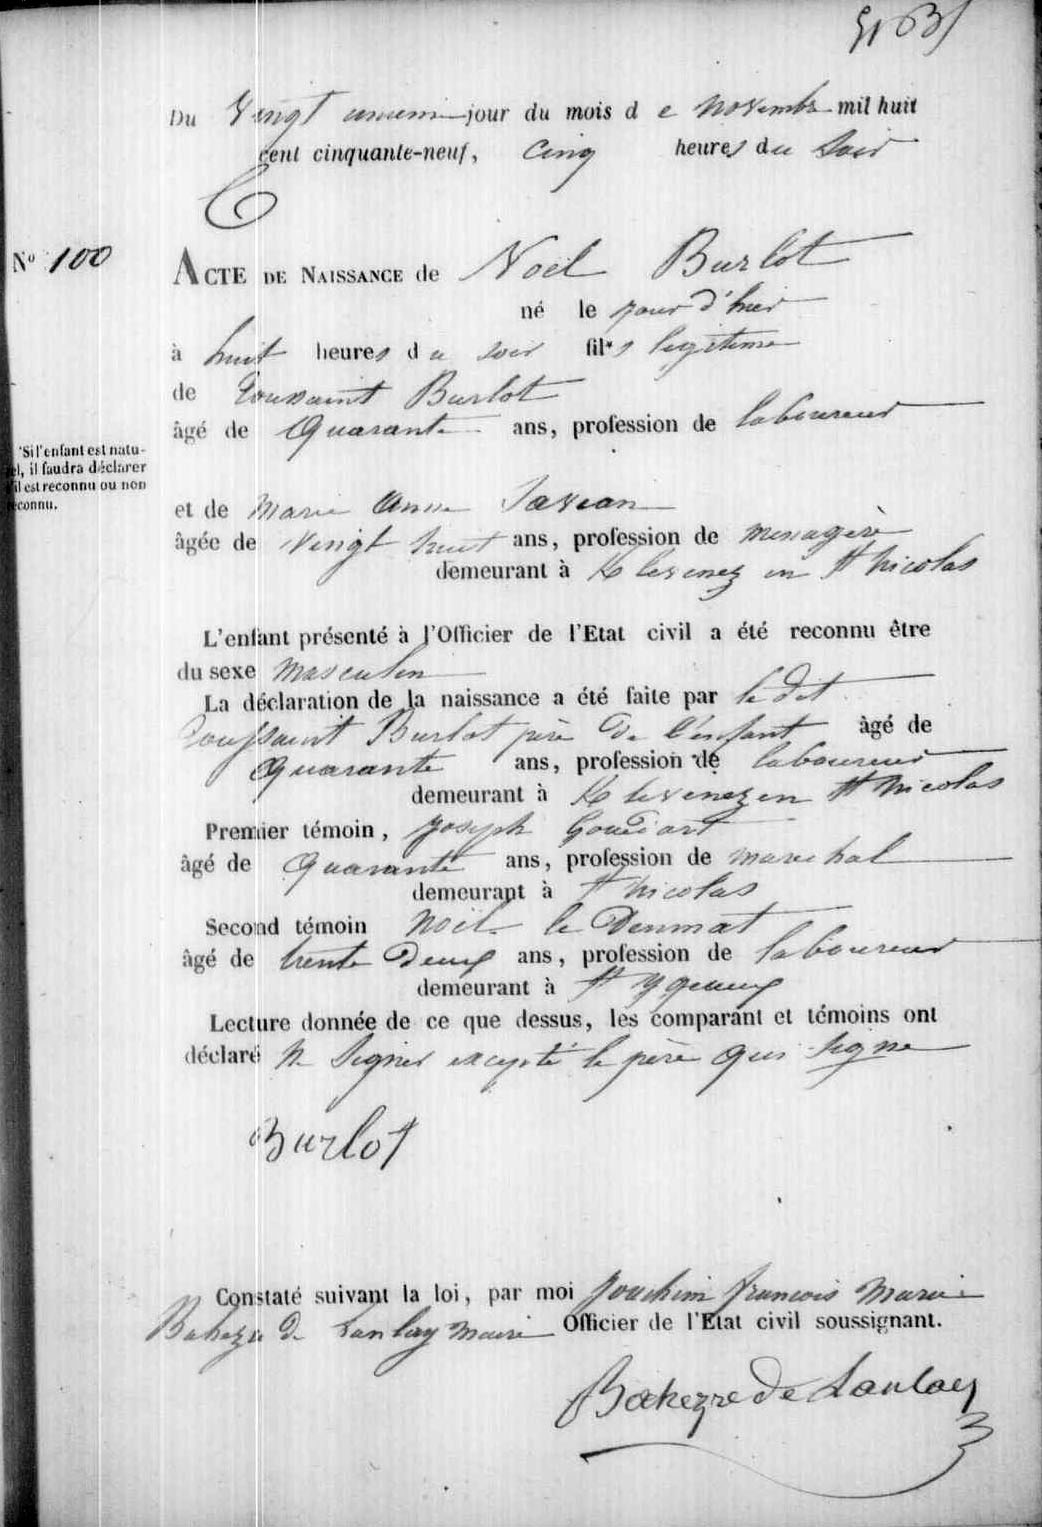 Du Vingt unieme jour du mois de Novembre mil huit
cent cinquante-neuf, cinq heures du Soir
N° 100
ACTE DE NAISSANCE de Noël Burlot
né le jour d'hier
à huit heures du soir fils legitime
de Toussaint Burlot
âgé de Quarante ans, profession de laboureur
*Si l'enfant est natu-
rel, il faudra déclarer
s'il est reconnu ou non
reconnu.
et de Marie Anne
âgée de Vingt huit ans, profession de menagère
demeurant à K levenez en St Nicolas
L'enfant présenté à l'Officier de l'Etat civil a été reconnu être
du sexe masculin
La déclaration de la naissance a été faite par le dit
Toussaint Burlot père de l'enfant âgé de
Quarante ans, profession de laboureur
demeurant à K levenez en St Nicolas
Premier témoin, Joseph
âgé de Quarante ans, profession de marechal
demeurant à St Nicolas
Second témoin Noël le Denmat
âgé de trente Deux ans, profession de laboureur
demeurant à St Ygeaux
Lecture donnée de ce que dessus, les comparant et témoins ont
déclaré ne Signer excepté le père qui signe
Burlot
Constaté suivant la loi, par moi Joachim françois Marie
Bahezre de Lanlay Maire Officier de l'Etat civil soussignant.
Bahezre de Lanlay